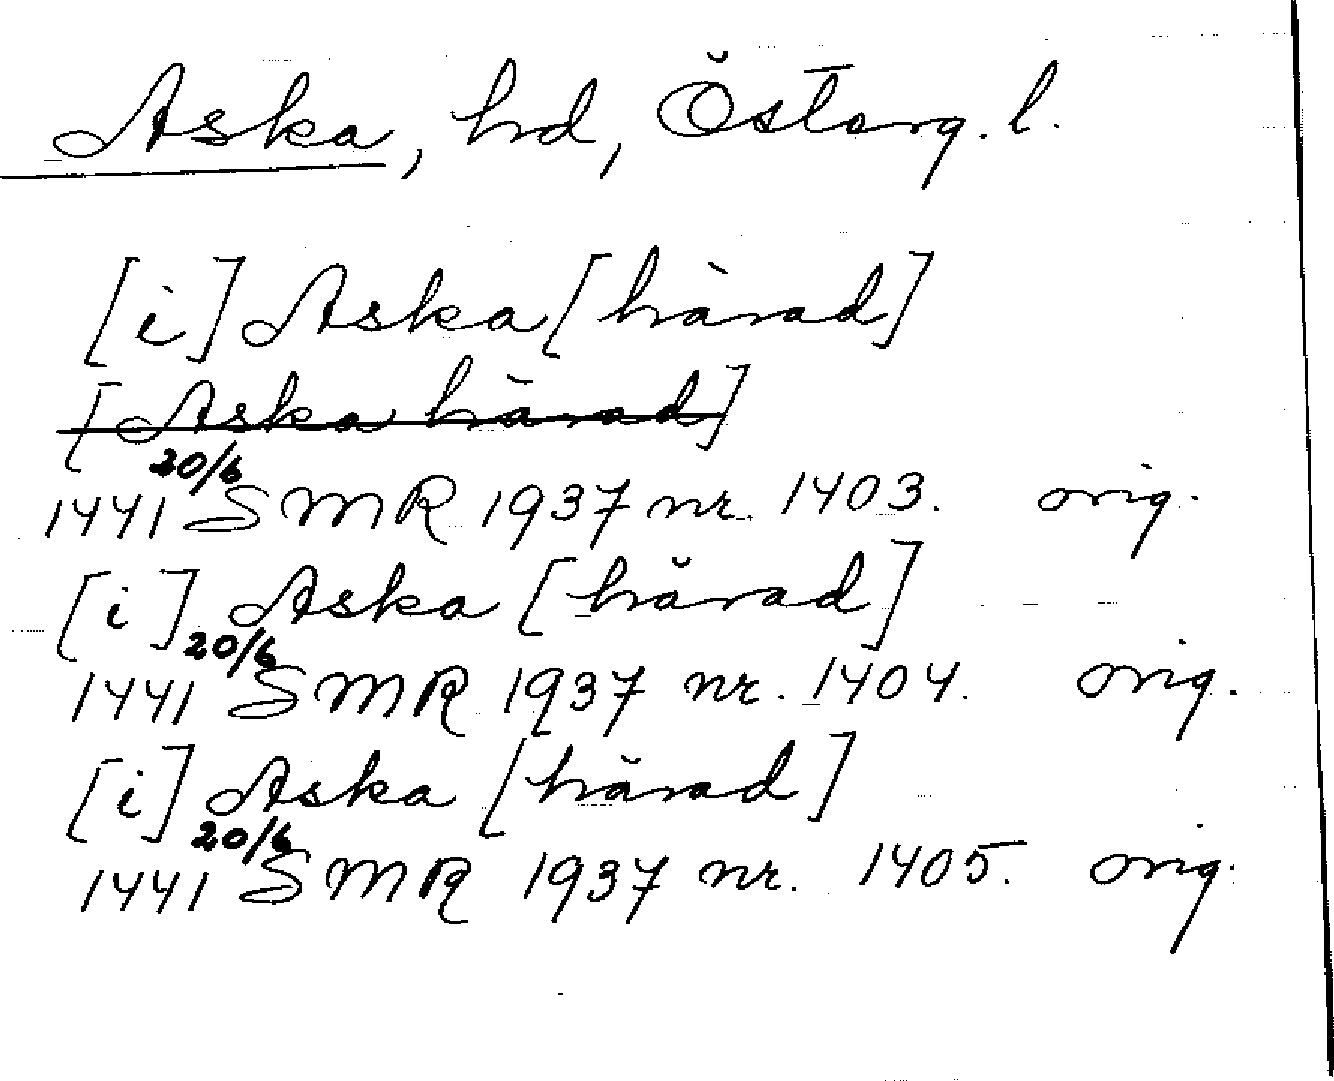 Aska, hd, Österg. l.
[i] Aska [härad]
[Aska härad]
20/6
1441 SMR 1937 nr. 1403. orig.
[i] Aska [härad]
20/6
1441 SMR 1937 nr. 1404. orig.
[i] Aska [härad]
20/6
1441 SMR 1937 nr. 1405. orig.